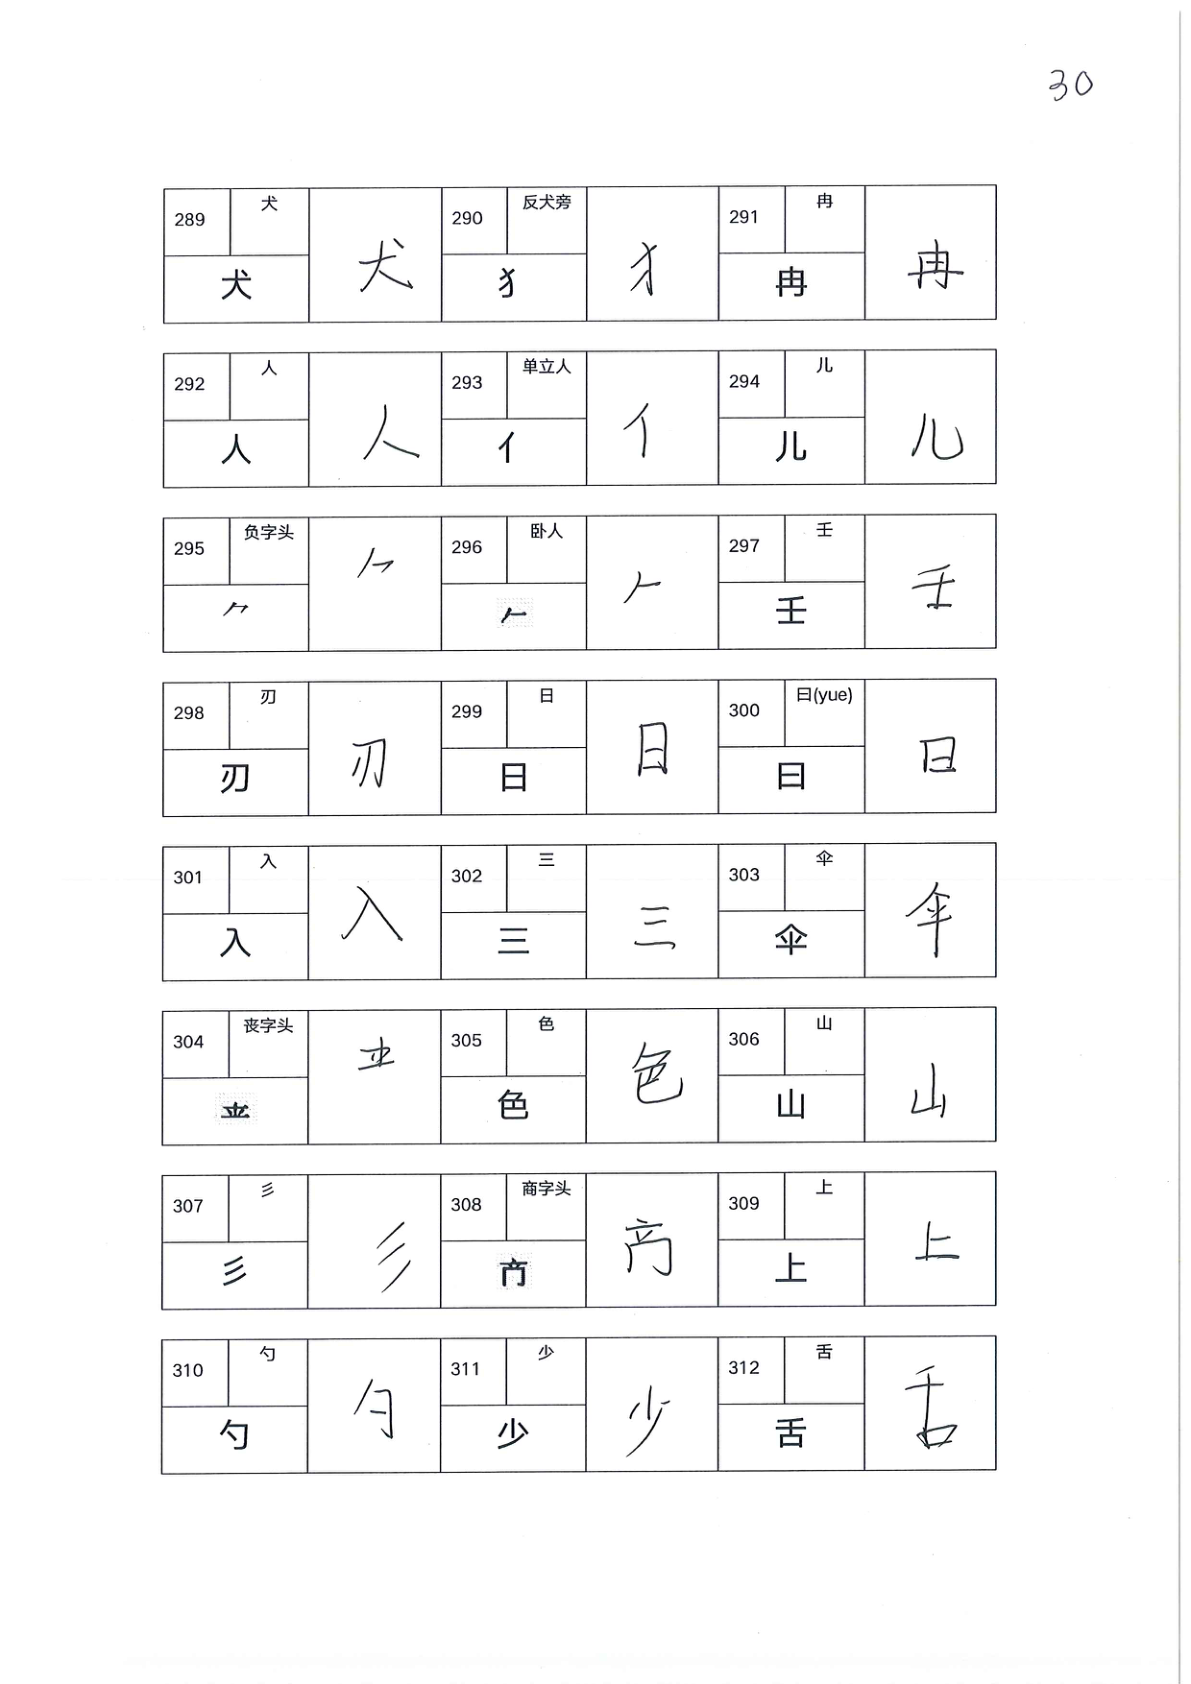 30
289 犬 犬 犬 290 反犬旁 犭 犭 291 冉 冉 冉
292 人 人 人 293 单立人 亻 亻 294 儿 儿 儿
295 负字头 ⺈ ⺈ 296 卧人 𠂉 𠂉 297 壬 壬 壬
298 刃 刃 刃 299 日 日 日 300 曰(yue) 曰 曰
301 入 入 入 302 三 三 三 303 伞 伞 伞
304 丧字头 305 色 色 色 306 山 山 山
307 彡 彡 彡 308 商字头 309 上 上 上
310 勺 勺 勺 311 少 少 少 312 舌 舌 舌